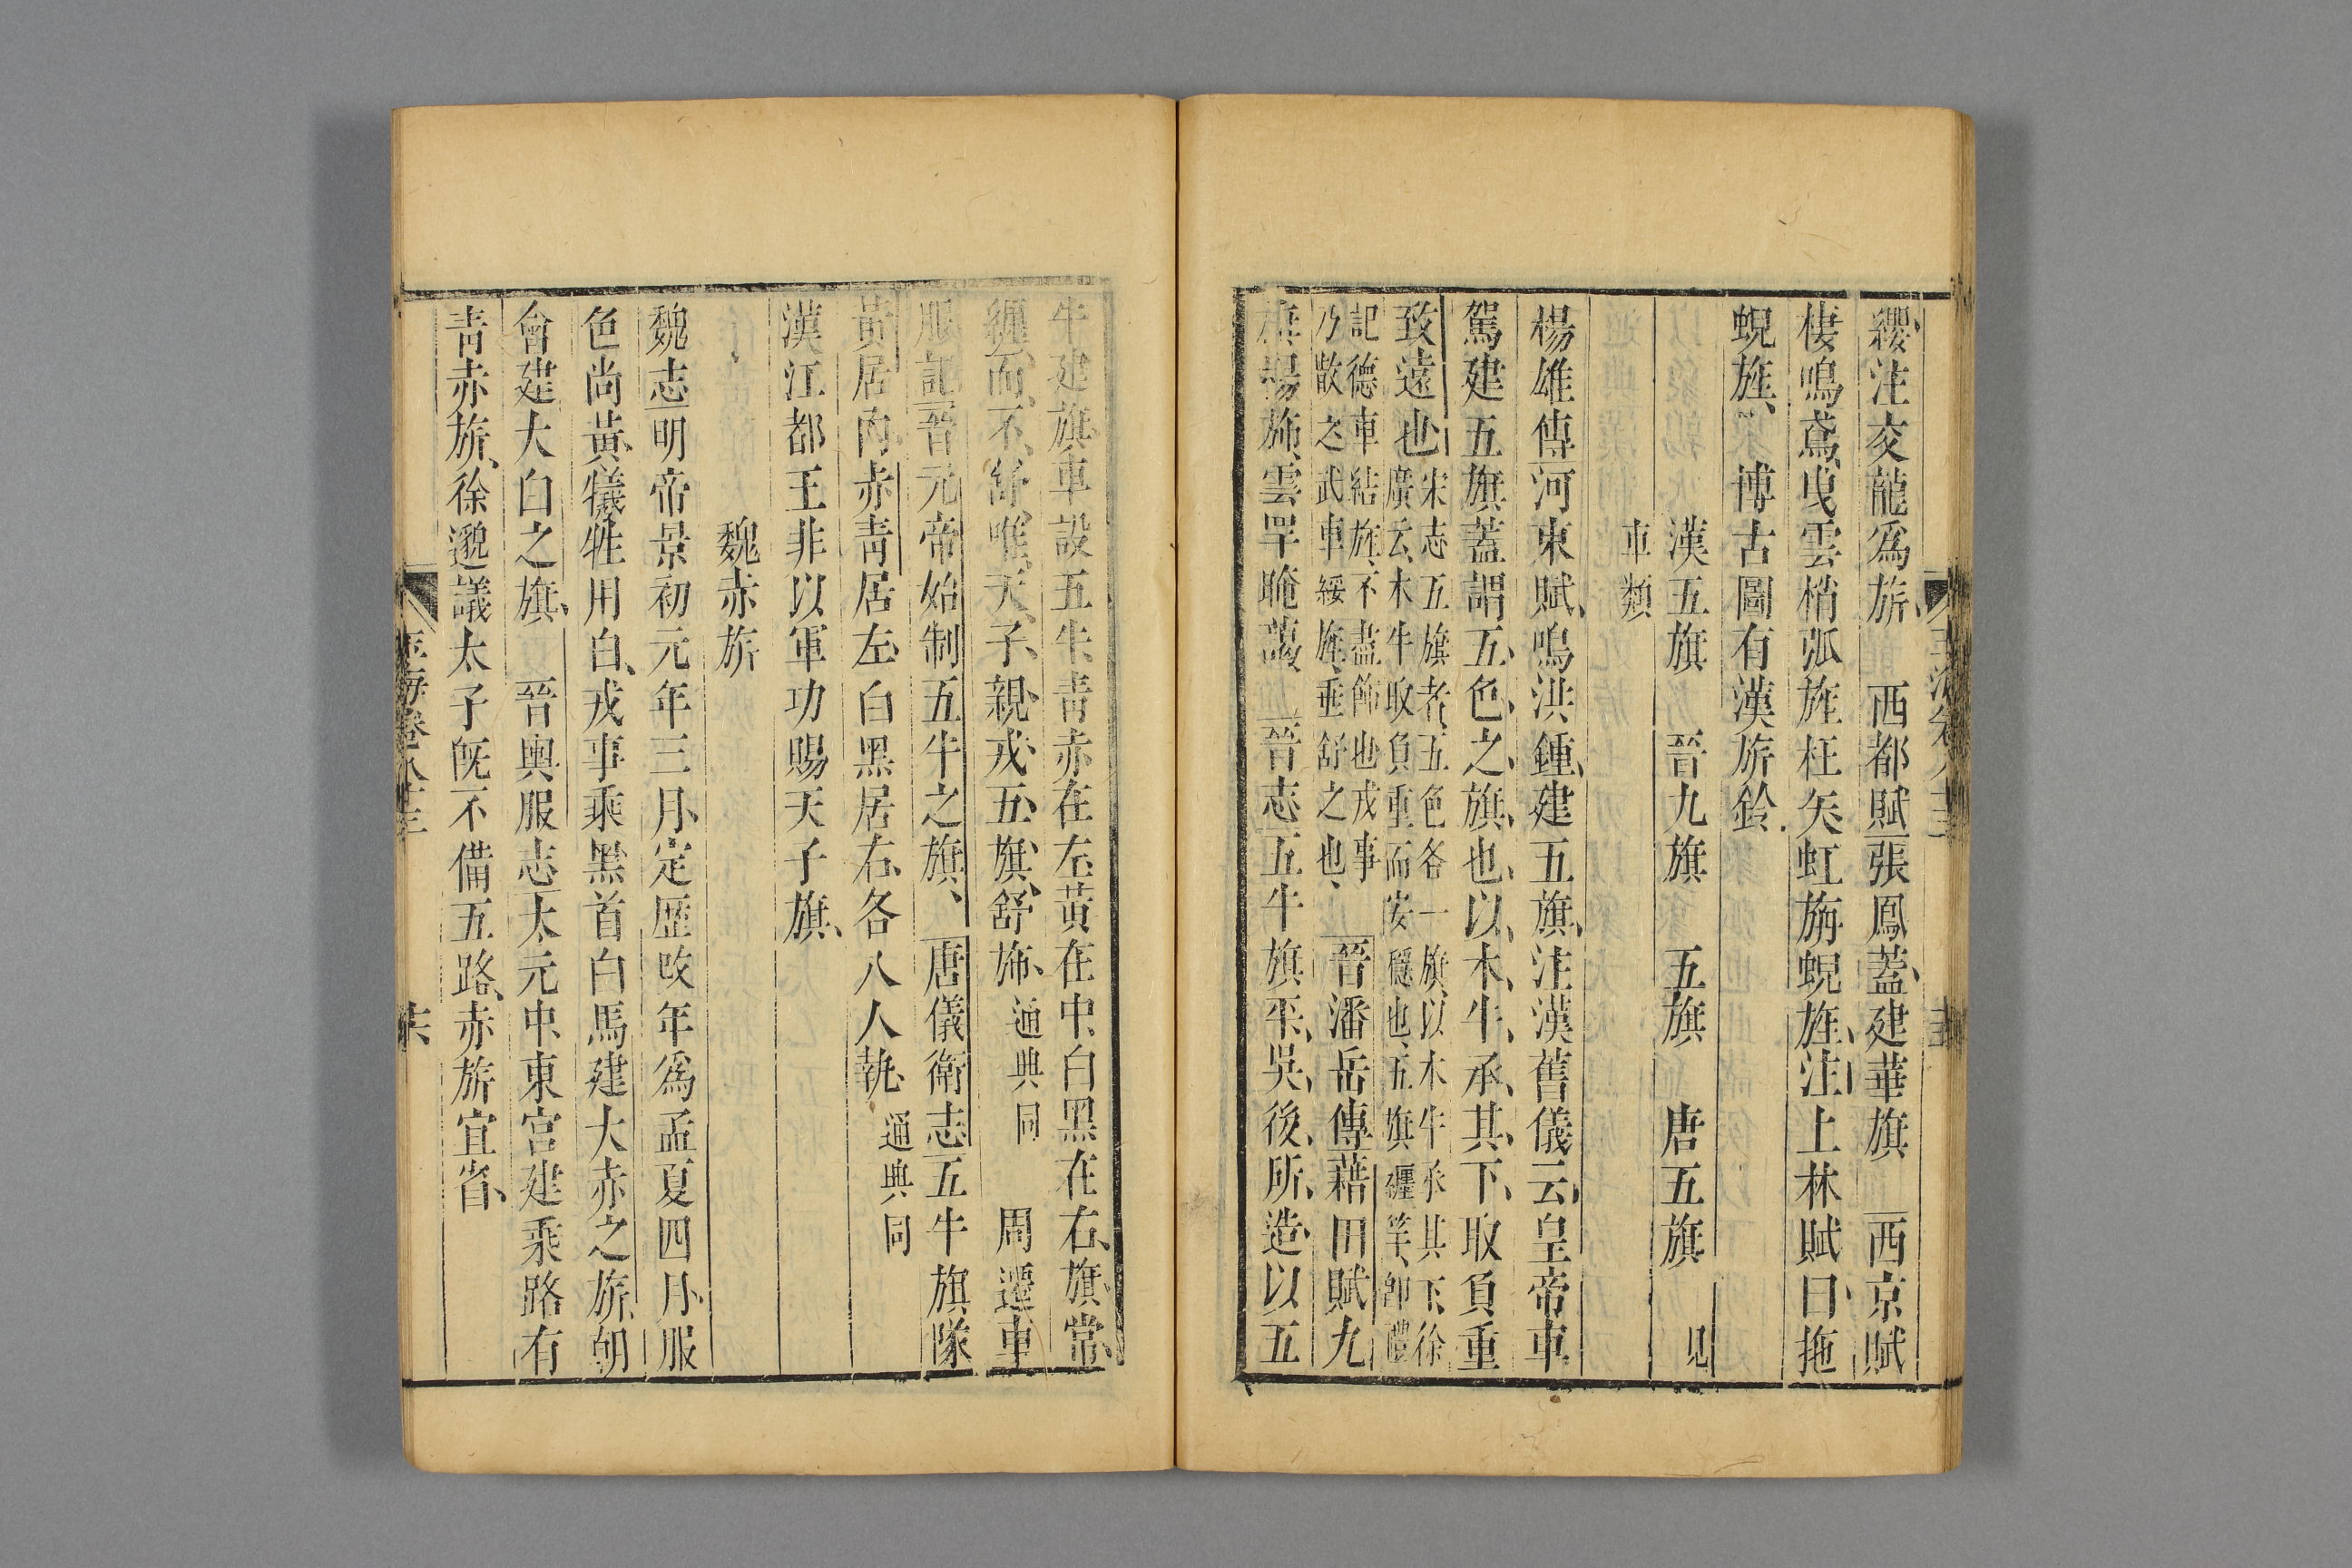 纓注交龍爲旂西都賦張鳳蓋建華旗西京賦
棲鳴鳶曳雲梢弧旌枉矢虹旃蜺旌注上林賦曰拖
蜺旌博古圖有漢旂鈴
漢五旗晉九旗五旗唐五旗見
車類
楊雄傳河東賦鳴洪鍾建五旗注漢舊儀云皇帝車
駕建五旗蓋謂五色之旗也以木牛承其下取負重
致遠也
宋志五旗者五色各一旗以木牛承其下徐
廣云木牛取負重而安穩也五旗纏竿卽禮
記德車結旌不盡飾也戎事
乃散之武車綏旌垂舒之也
晉潘岳傳藉田賦九
旗揚斾雲罕晻藹晉志五牛旗平吳後所造以五
牛建旗車設五牛靑赤在左黃在中白黑在右旗常
纏而不舒唯天子親戎五旗舒斾通典同周遷車
服記晉元帝始制五牛之旗唐儀衛志五牛旗隊
黃居內赤靑居左白黑居右各八人執通典同
漢江都王非以軍功賜天子旗
魏赤旂
魏志明帝景初元年三月定歷改年爲孟夏四月服
色尚黃犧牲用白戎事乘黑首白馬建大赤之旂朝
會建大白之旗晉輿服志太元中東宮建乘路有
靑赤旂徐邈議太子旣不備五路赤旂宜省
玉海卷八十三